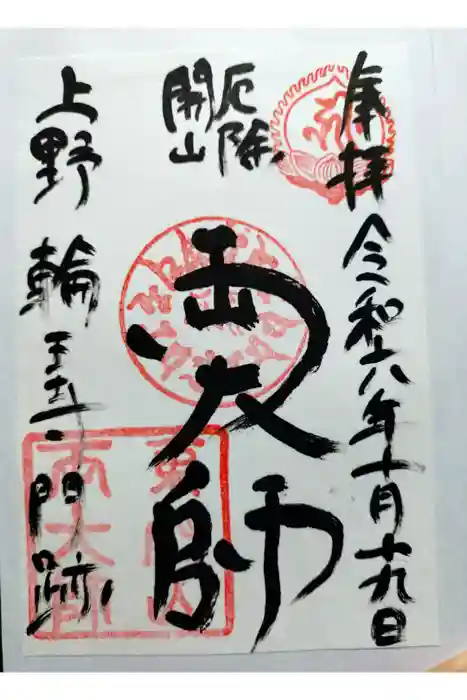 奉拝
令和六年十月十九日
厄除
開山
両大師
上野 輪王寺門跡